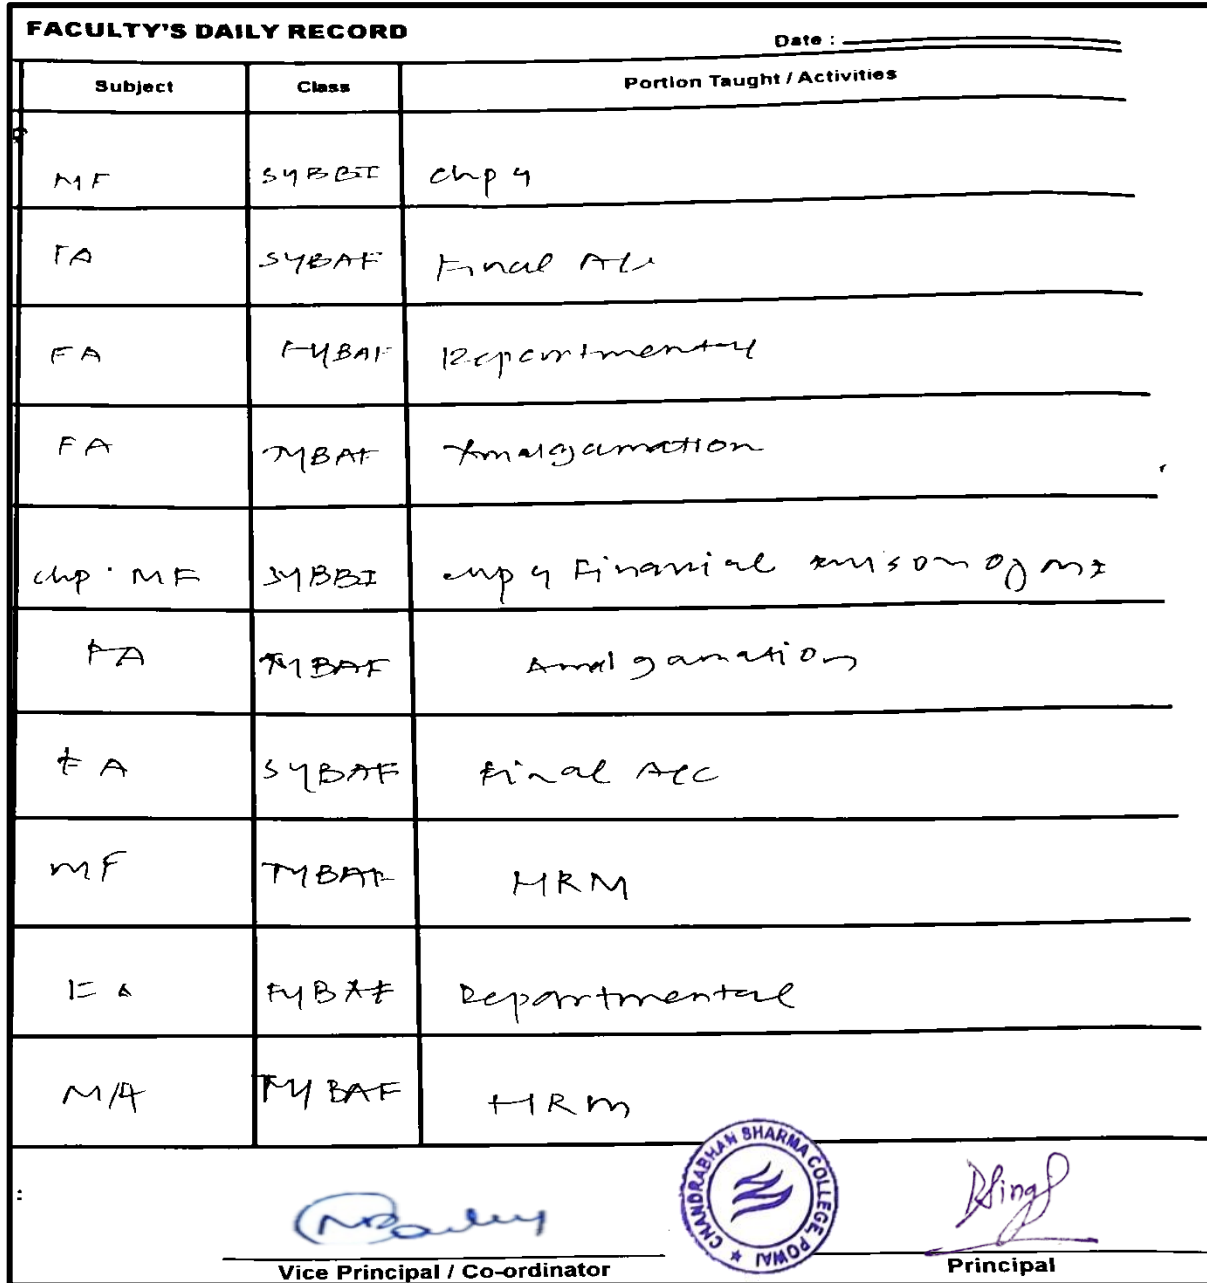 FACULTY'S DAILY RECORD
Date :
Subject Class Portion Taught / Activities
MF SYBBI chp 4
FA SYBAF Final A/c
FA FYBAF Departmental
FA TYBAF Amalgamation
chp. MF SYBBI chp 4 Financial of
FA TYBAF Amalgamation
FA SYBAF Final A/c
MF TYBAF HRM
FA FYBAF Departmental
M/A TYBAF HRM
CHANDRABHAN SHARMA COLLEGE, POWAI
Vice Principal / Co-ordinator
Principal